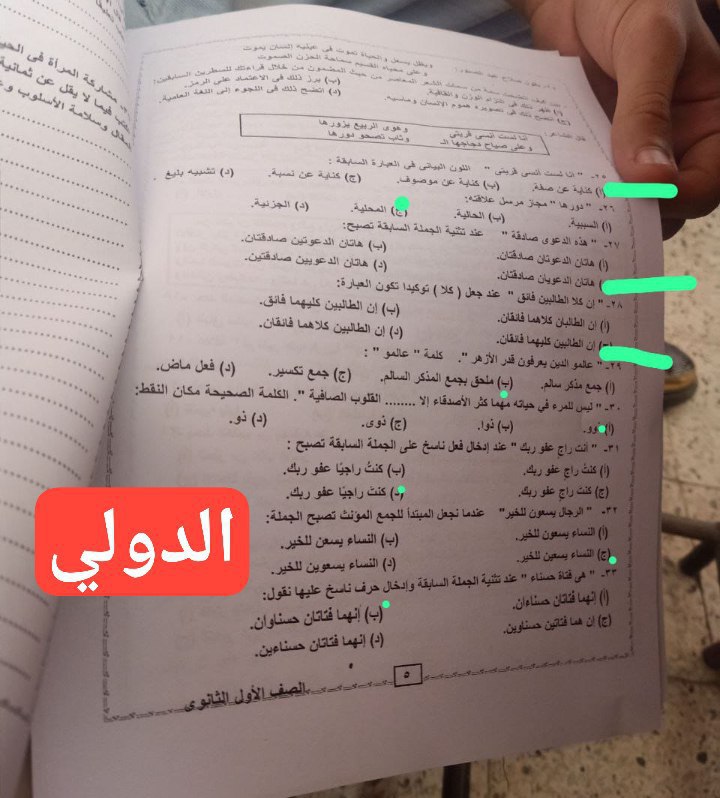 ويظل يسعل والحياة تموت فى عينيه إنسان يموت
وعلى محياه القسيم سماحة الحزن الصموت
من حيث المضمون من خلال قراءتك للسطرين السابقين:
(ب) برز ذلك فى الاعتماد على الرمز.
(ج) اتضح ذلك فى تصويره هموم الإنسان ومآسيه.
(د) اتضح ذلك فى اللجوء إلى اللغة العامية.
أنا لست أنسى قريتى وهوى الربيع يزورها
وعلى صياح دجاجها الـ وثاب تصحو دورها
٢٥- " أنا لست أنسى قريتى " اللون البيانى فى العبارة السابقة :
(أ) كناية عن صفة. (ب) كناية عن موصوف. (ج) كناية عن نسبة. (د) تشبيه بليغ
٢٦- " دورها " مجاز مرسل علاقته:
(أ) السببية. (ب) الحالية. (ج) المحلية. (د) الجزئية.
٢٧- " هذه الدعوى صادقة " عند تثنية الجملة السابقة تصبح:
(أ) هاتان الدعوتان صادقتان. (ب) هاتان الدعوتين صادقتان.
هاتان الدعويان صادقتان. (د) هاتان الدعويين صادقتين.
٢٨- " إن كلا الطالبين فائق " عند جعل ( كلا ) توكيدا تكون العبارة:
(أ) إن الطالبان كلاهما فائقان. (ب) إن الطالبين كليهما فائق.
(ج) إن الطالبين كليهما فائقان. (د) إن الطالبين كلاهما فائقان.
٢٩- " عالمو الدين يعرفون قدر الأزهر ". كلمة " عالمو " :
(أ) جمع مذكر سالم. (ب) ملحق بجمع المذكر السالم. (ج) جمع تكسير. (د) فعل ماض.
٣٠- " ليس للمرء فى حياته مهما كثر الأصدقاء إلا ........ القلوب الصافية ". الكلمة الصحيحة مكان النقط:
(أ) ذوو. (ب) ذوا. (ج) ذوى. (د) ذو.
٣١- " أنت راج عفو ربك " عند إدخال فعل ناسخ على الجملة السابقة تصبح :
(أ) كنتُ راجٍ عفو ربك. (ب) كنتُ راجيًا عفو ربك.
(ج) كنت راج عفو ربك. (د) كنت راجيًا عفو ربك.
٣٢- " الرجال يسعون للخير" عندما نجعل المبتدأ للجمع المؤنث تصبح الجملة:
(أ) النساء يسعون للخير. (ب) النساء يسعن للخير.
(ج) النساء يسعين للخير. (د) النساء يسعوين للخير.
٣٣- " هى فتاة حسناء " عند تثنية الجملة السابقة وإدخال حرف ناسخ عليها نقول:
(أ) إنهما فتاتان حسناءان. (ب) إنهما فتاتان حسناوان.
(ج) إن هما فتاتين حسناوين. (د) إنهما فتاتان حسناءين.
٥
الصف الأول الثانوى
الدولي